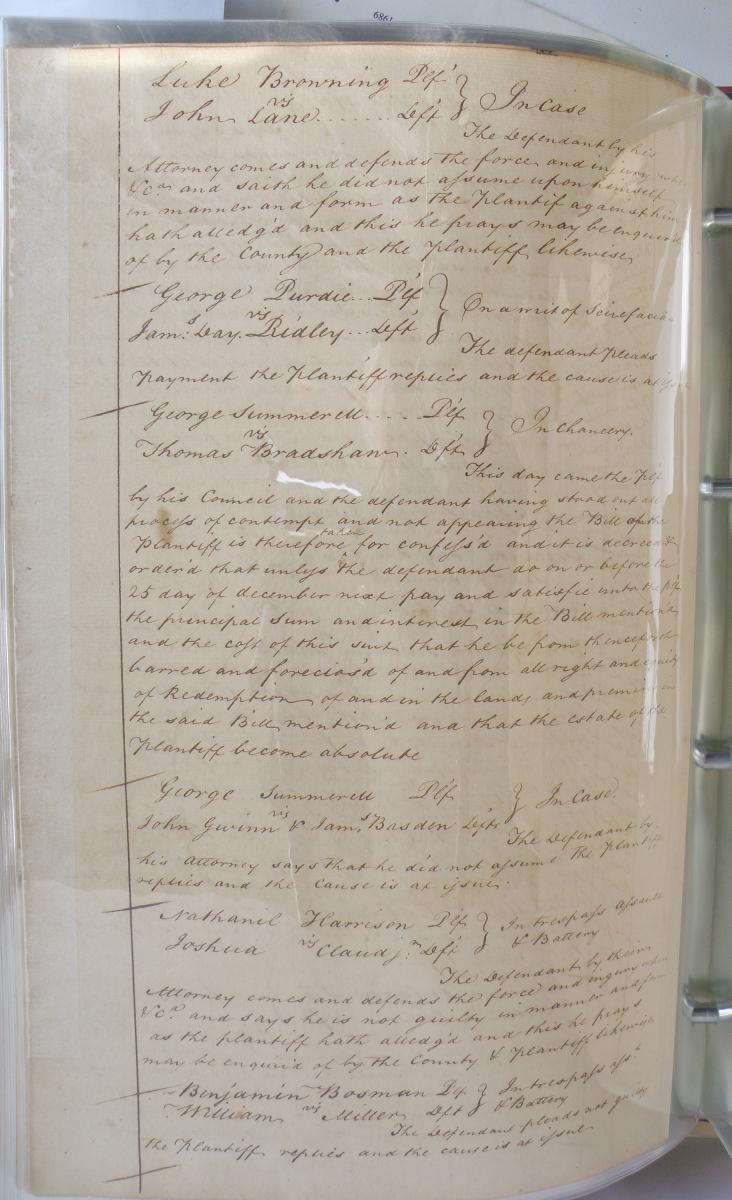 Luke Browning Plf } In Case
vs
John Lane ....... Deft
The Defendant by his
Attorney comes and defends the force and injury
&c.a and saith he did not assume upon himself
in manner and form as the Plantif against him
hath alledg'd and this he prays may be enquir'd
of by the County and the Plantiff likewise
George Purdie ... Plf } On a writ of Scirefacias
vs
Jam.s Day Ridley ... Deft
The defendant Pleads
Payment the Plantiff replies and the cause is at
George Summerell ..... Plf } In Chancery.
vs
Thomas Bradshaw . Deft
This day came the Plf
by his Council and the defendant having stood out all
process of contempt and not appearing the Bill of the
taken
Plantiff is therefore for confess'd and it is decreed &
order'd that unless the defendant do on or before the
25 day of december next pay and satisfie unto the Plf
the principal sum and interest in the Bill mention'd
and the cost of this suit that he be from thenceforth
barred and foreclos'd of and from all right and equity
of Redemption of and in the lands and premises in
the said Bill mention'd and that the estate of the
Plantiff become absolute
George Summerell Plf } In Case
vs
John Gwinn & Jam.s Basden Defts
The Defendant by
his attorney says that he did not assume The Plantiff
replies and the Cause is at issue.
Nathanil Harrison Plf } In trespass assault
& Battery
Joshua vs Claud j.r Deft
The Defendant by their
Attorney comes and defends the force and injury when
&c.a and says he is not guilty in manner and form
as the plantiff hath alledg'd and this he prays
may be enquir'd of by the County & Plantiff likewise
Benjamin Bosman Plf } In trespass ass.t
& Battery
William vs Miller Deft
The Defendant pleads not guilty
the Plantiff replies and the cause is at issue